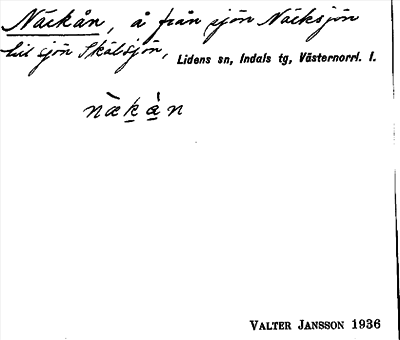 Näckån, å från sjön Näcksjön
till sjön Skälsjön, Lidens sn, Indals tg, Västernorrl. l.
nækån
VALTER JANSSON 1936